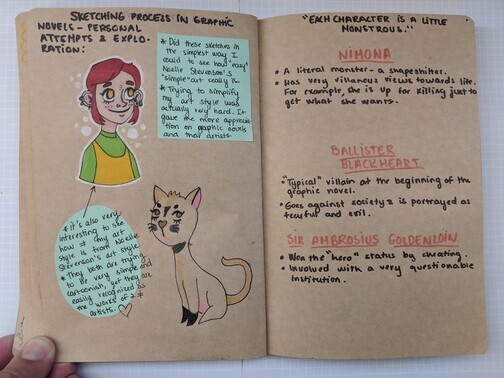 SKETCHING PROCESS IN GRAPHIC
NOVELS - PERSONAL
ATTEMPTS & EXPLO-
RATION:
* Did these sketches in
the simplest way I
could to see how "easy"
Noelle Stevenson's
"simple" art really is.
* Trying to simplify
my art style was
actually very hard. It
gave me more apprecia-
tion on graphic novels
and their artists.
* it's also very
interesting to see
how my art
style is from Noelle
Stevenson's art style.
* They both are trying
to be very simple and
cartoonish, yet they are
easily recognized as
the works of 2 ≠
artists.
"EACH CHARACTER IS A LITTLE
MONSTROUS."
NIMONA
• A literal monster - a shapeshifter.
• Has very villanous views towards life.
For example, she is up for killing just to
get what she wants.
BALLISTER
BLACKHEART
• "Typical" villain at the beginning of the
graphic novel.
• Goes against society & is portrayed as
fearful and evil.
SIR AMBROSIUS GOLDENLOIN
• Won the "hero" status by cheating.
• Involved with a very questionable
institution.